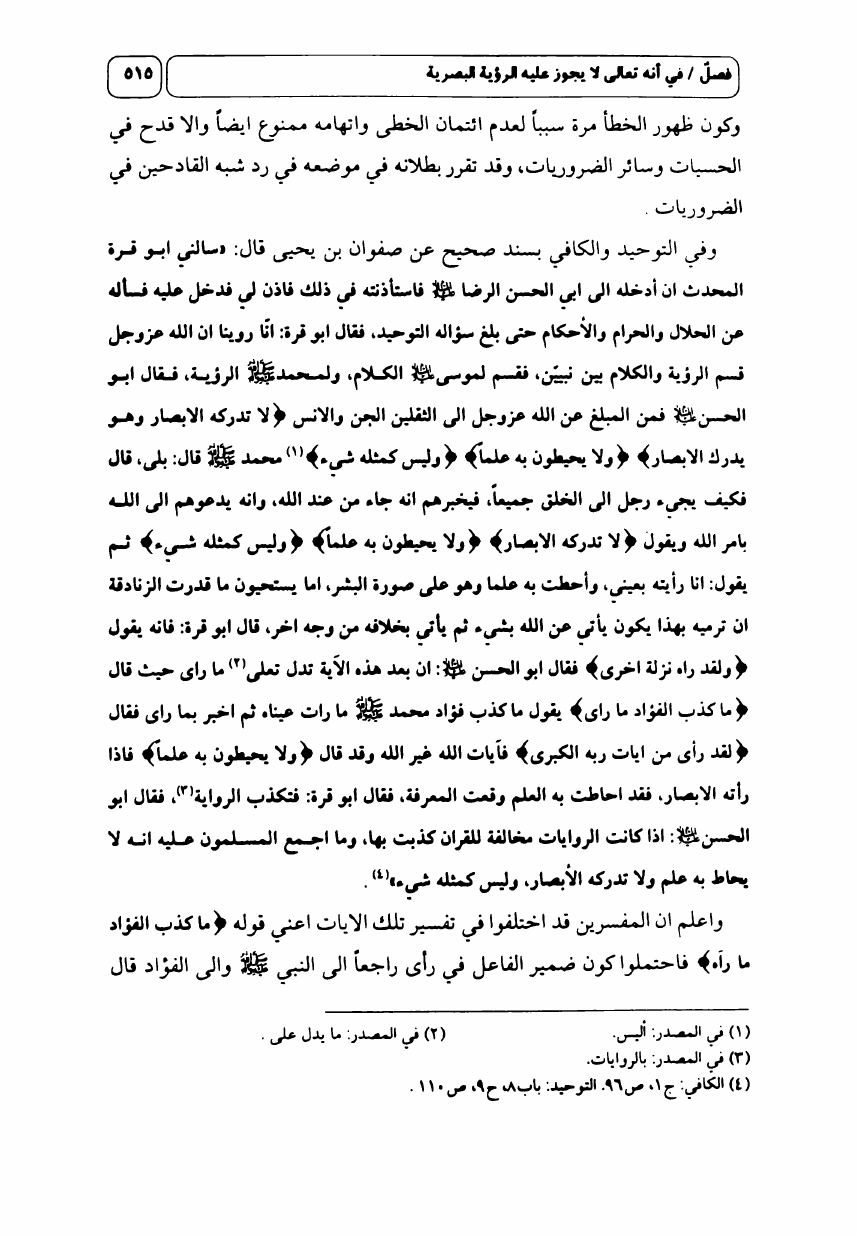 فصلٌ / في أنه تعالى لا يجوز عليه الرؤية البصرية ٥١٥
وكون ظهور الخطأ مرة سبباً لعدم ائتمان الخطى واتهامه ممنوع ايضاً والا قدح في
الحسيات وسائر الضروريات، وقد تقرر بطلانه في موضعه في رد شبه القادحين في
الضروريات .
وفي التوحيد والكافي بسند صحيح عن صفوان بن يحيى قال: «سالني ابو قرة
المحدث ان أدخله الى ابي الحسن الرضا ﷺ فاستأذنته في ذلك فاذن لي فدخل عليه فسأله
عن الحلال والحرام والأحكام حتى بلغ سؤاله التوحيد، فقال ابو قرة: انّا روينا ان الله عزوجل
قسم الرؤية والكلام بين نبييّن، فقسم لموسى الكلام، ولمحمد ﷺ الرؤية، فقال ابو
الحسن فمن المبلغ عن الله عزوجل الى الثقلين الجن والانس ﴿لا تدركه الابصار وهو
يدرك الابصار﴾ ﴿ولا يحيطون به علماً﴾ ﴿وليس كمثله شيء﴾(١) محمد ﷺ قال: بلى، قال
فكيف يجيء رجل الى الخلق جميعاً، فيخبرهم انه جاء من عند الله، وانه يدعوهم الى الله
بامر الله ويقول ﴿لا تدركه الابصار﴾ ﴿ولا يحيطون به علماً﴾ ﴿وليس كمثله شيء﴾ ثم
يقول: انا رأيته بعيني، وأحطت به علما وهو على صورة البشر، اما يستحيون ما قدرت الزنادقة
ان ترميه بهذا يكون يأتي عن الله بشيء ثم يأتي بخلافه من وجه اخر، قال ابو قرة: فانه يقول
﴿ولقد راه نزلة اخرى﴾ فقال ابو الحسن : ان بعد هذه الآية تدل تعلى(٢) ما راى حيث قال
﴿ما كذب الفؤاد ما راى﴾ يقول ما كذب فؤاد محمد ﷺ ما رات عيناه ثم اخبر بما راى فقال
﴿لقد رأى من ايات ربه الكبرى﴾ فآيات الله غير الله وقد قال ﴿ولا يحيطون به علماً﴾ فاذا
رأته الابصار، فقد احاطت به العلم وقعت المعرفة، فقال ابو قرة: فتكذب الرواية(٣)، فقال ابو
الحسن : اذا كانت الروايات مخالفة للقران كذبت بها، وما اجمع المسلمون عليه انه لا
يحاط به علم ولا تدركه الأبصار، وليس كمثله شيء»(٤) .
واعلم ان المفسرين قد اختلفوا في تفسير تلك الايات اعني قوله ﴿ما كذب الفؤاد
ما رآه﴾ فاحتملوا كون ضمير الفاعل في رأى راجعاً الى النبي ﷺ والى الفؤاد قال
(١) في المصدر: أليس. (٢) في المصدر: ما يدل على .
(٣) في المصدر: بالروايات.
(٤) الكافي: ج١، ص٩٦. التوحيد: باب٨، ح٩، ص١١٠ .